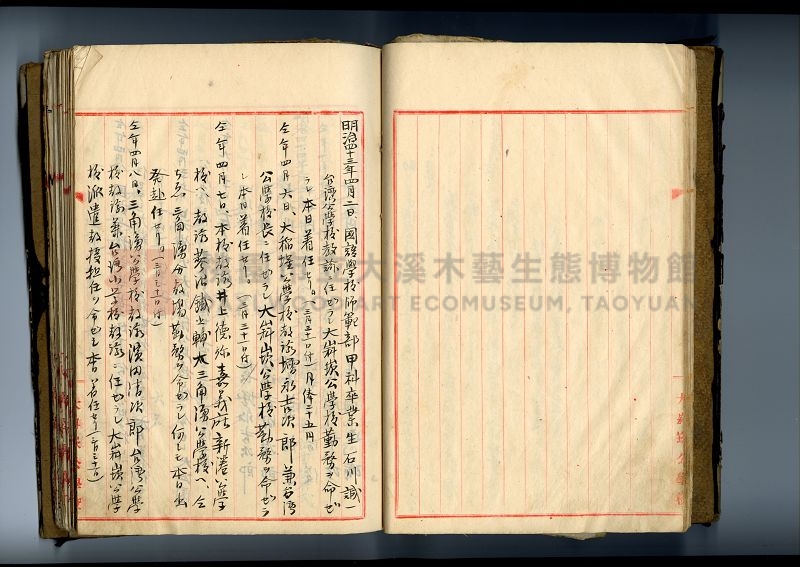 明治四十三年四月二日、國語學校師範部甲科卒業生石川誠一
台湾公學校教諭ニ任セラレ大嵙崁公學校勤務ヲ命セ
ラレ本日着任セリ(三月三十一日付)月俸二十五円
仝年四月六日、大稲埕公學校教諭 永吉次郎兼台湾
公學校長ニ任セラレ大嵙崁公學校勤務ヲ命セラ
レ本日着任セリ(三月三十一日付)
仝年四月七日、本校教諭井上德弥嘉義廳新港公學
校ヘ、教諭 治鐵之輔太三角湧公學校ヘ、仝
三角湧分教場勤務ヲ命セラレ何レモ本日出
発赴任セリ(三月三十一日付)
仝年四月八日、三角湧公學校教諭濱田清次郎台湾公學
校教諭兼台湾小学校教諭ニ任セラレ大嵙崁公學
校派遣教授担任ヲ命セラレ本日着任セリ(三月三十一日)
大嵙崁公學校
大嵙崁公學校
大溪木藝生態博物館
WOOD ART ECOMUSEUM, TAOYUAN